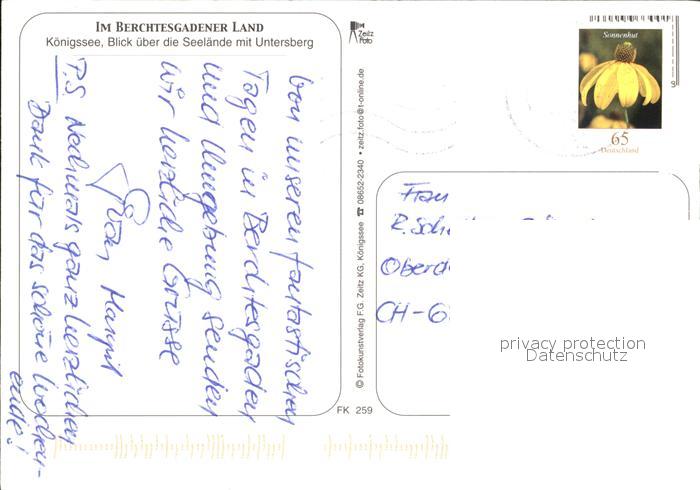 IM BERCHTESGADENER LAND
Königssee, Blick über die Seelände mit Untersberg
Von unseren fantastischen
Tagen in Berchtesgaden
und Umgebung senden
wir herzliche Grüsse
Margrit
P.S Nochmals ganz herzlichen
Dank für das schöne Wochen-
ende!
FK 259
© Fotokunstverlag F.G. Zeitz KG, Königssee ☎ 08652-2340 • zeitz.foto@t-online.de
Zeitz
Foto
Sonnenhut
65
Deutschland
Frau
R. Sch
Ober
CH-6
privacy protection
Datenschutz